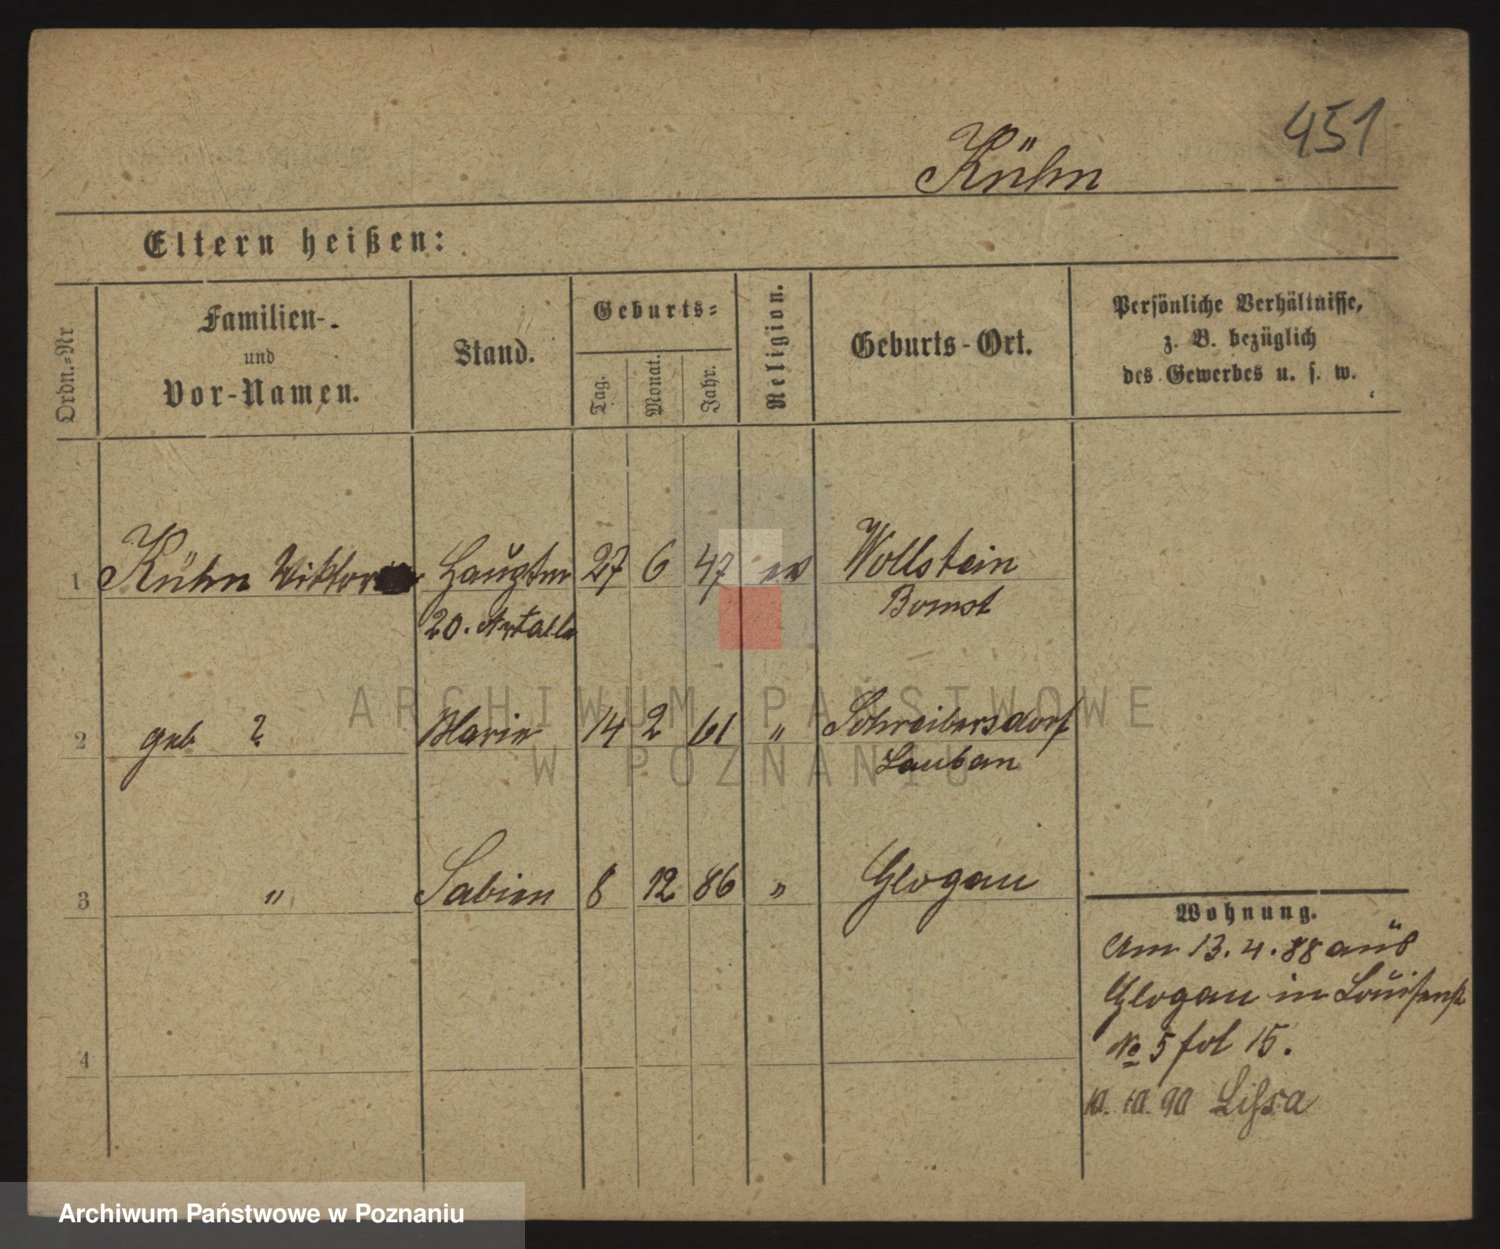 451
Kühn
Eltern heißen:
Ordn.=Nr
Familien-.
und
Vor-Namen.
Stand.
Geburts=
Tag.
Monat.
Jahr.
Religion.
Geburts-Ort.
Persönliche Verhältnisse,
z. B. bezüglich
des Gewerbes u. s. w.
1 Kühn Viktor Hauptm 27 6 47 ev Wollstein
20. Artall Bomst
2 geb ? Marie 14 2 61 " Schreibersdorf
Lauban
3 " Sabien 8 12 86 " Glogau
4
Wohnung.
Am 13.4.88 aus
Glogau in Louisenst
No 5 fol 15.
10. 10. 90 Lissa
ARCHIWUM PAŃSTWOWE
W POZNANIU
Archiwum Państwowe w Poznaniu